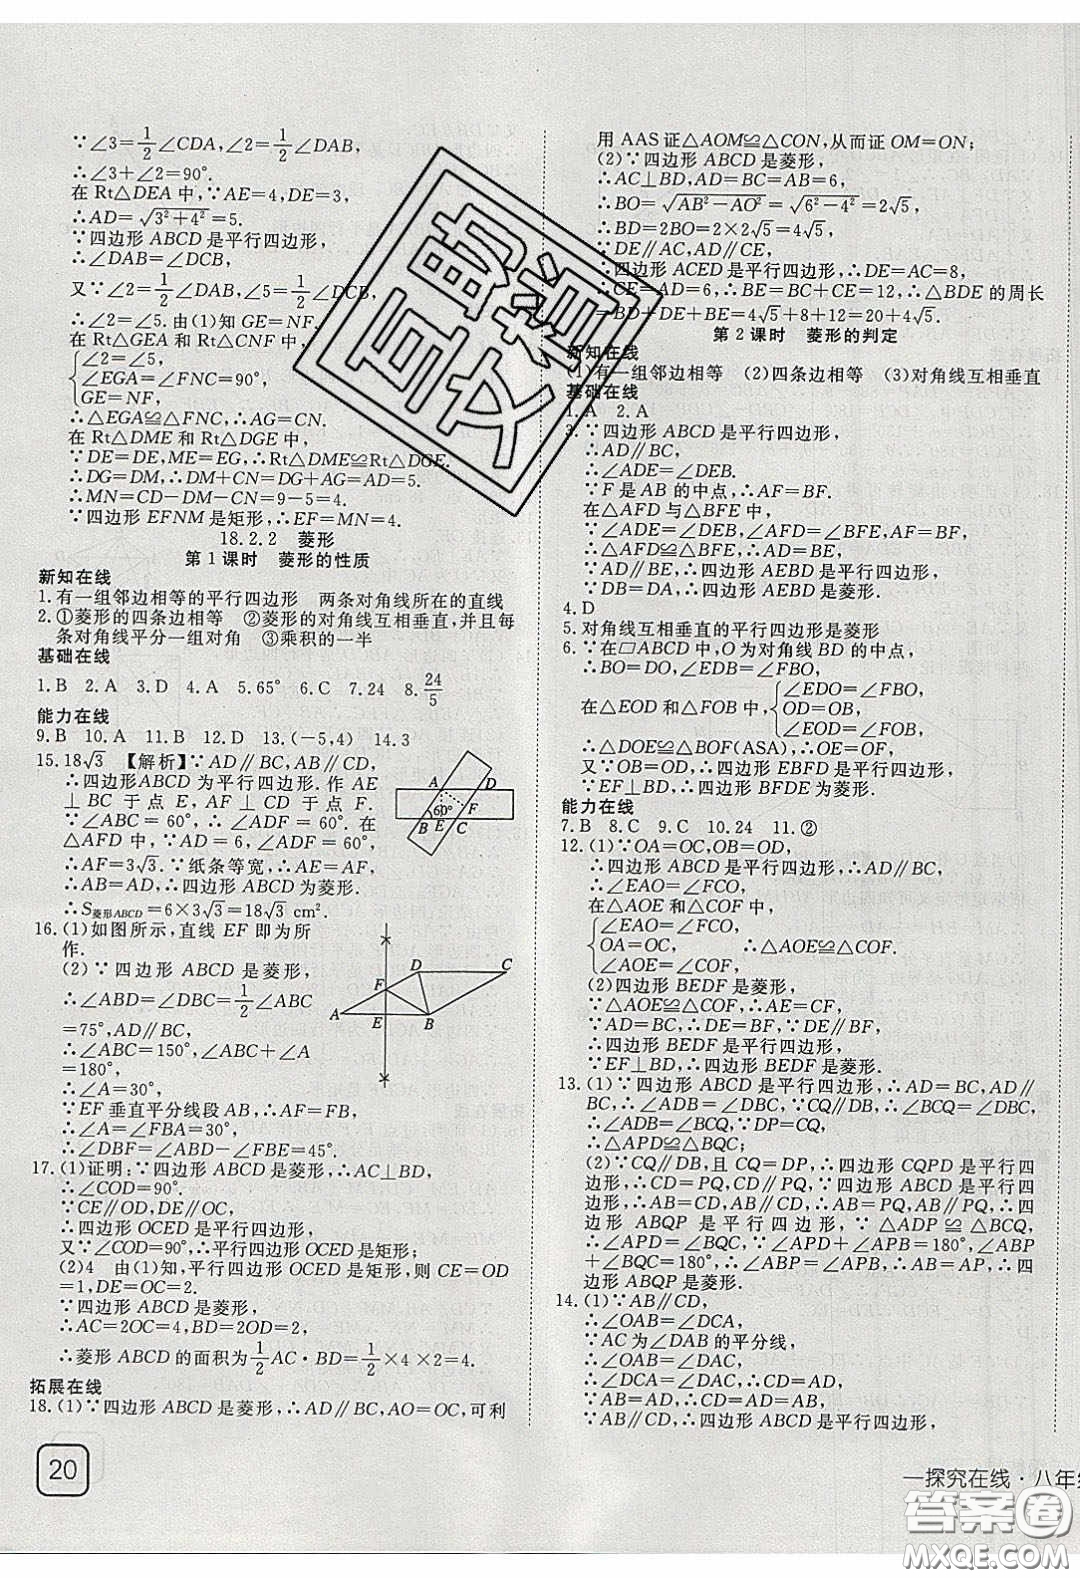 ∵∠3=1/2∠CDA,∠2=1/2∠DAB,
∴∠3+∠2=90°.
在 Rt△DEA 中,∵AE=4,DE=3,
∴AD=√(3²+4²)=5.
∵四边形 ABCD 是平行四边形,
∴∠DAB=∠DCB,
又∵∠2=1/2∠DAB,∠5=1/2∠DCB,
∴∠2=∠5.由(1)知 GE=NF,
在 Rt△GEA 和 Rt△CNF 中,
∠2=∠5,
∠EGA=∠FNC=90°,
GE=NF,
∴△EGA≌△FNC,∴AG=CN.
在 Rt△DME 和 Rt△DGE 中,
∵DE=DE,ME=EG,∴Rt△DME≌Rt△DGE.
∴DG=DM,∴DM+CN=DG+AG=AD=5.
∴MN=CD-DM-CN=9-5=4.
∵四边形 EFNM 是矩形,∴EF=MN=4.
18.2.2 菱形
第1课时 菱形的性质
新知在线
1.有一组邻边相等的平行四边形 两条对角线所在的直线
2.①菱形的四条边相等 ②菱形的对角线互相垂直,并且每
条对角线平分一组对角 ③乘积的一半
基础在线
1.B 2.A 3.D 4.A 5.65° 6.C 7.24 8.24/5
能力在线
9.B 10.A 11.B 12.D 13.(-5,4) 14.3
15.18√3 【解析】∵AD∥BC,AB∥CD,
∴四边形ABCD 为平行四边形.作 AE
⊥BC 于点 E,AF⊥CD 于点 F.
∵∠ABC=60°,∴∠ADF=60°.在
△AFD 中,∵AD=6,∠ADF=60°,
∴AF=3√3.∵纸条等宽,
∴AB=AD,∴四边形 ABCD 为菱形.
∴S菱形ABCD=6×3√3=18√3 cm².
A D
60° F
B E C
16.(1)如图所示,直线 EF 即为所
作.
(2)∵四边形 ABCD 是菱形,
∴∠ABD=∠DBC=1/2∠ABC
=75°,AD∥BC,
∴∠ABC=150°,∠ABC+∠A
=180°,
∴∠A=30°,
∵EF垂直平分线段 AB,∴AF=FB,
∴∠A=∠FBA=30°,
∴∠DBF=∠ABD-∠FBE=45°.
D C
F
A E B
17.(1)证明:∵四边形 ABCD 是菱形,∴AC⊥BD,
∴∠COD=90°.
∵CE∥OD,DE∥OC,
∴四边形 OCED 是平行四边形,
又∵∠COD=90°,∴平行四边形OCED 是矩形;
(2)4 由(1)知,平行四边形 OCED 是矩形,则 CE=OD
=1,DE=OC=2.
∵四边形 ABCD 是菱形,
∴AC=2OC=4,BD=2OD=2,
∴菱形 ABCD 的面积为1/2AC·BD=1/2×4×2=4.
拓展在线
18.(1)∵四边形 ABCD 是菱形,∴AD∥BC,AO=OC,可利
20
用 AAS 证△AOM≌△CON,从而证 OM=ON;
(2)∵四边形 ABCD 是菱形,
∴AC⊥BD,AD=BC=AB=6,
∴BO=√(AB²-AO²)=√(6²-4²)=2√5,
∴BD=2BO=2×2√5=4√5,
∵DE∥AC,AD∥CE,
∴四边形 ACED 是平行四边形,∴DE=AC=8,
∴CE=AD=6,∴BE=BC+CE=12,∴△BDE 的周长
=BD+DE+BE=4√5+8+12=20+4√5.
第2课时 菱形的判定
新知在线
(1)有一组邻边相等 (2)四条边相等 (3)对角线互相垂直
基础在线
1.A 2.A
3.∵四边形 ABCD 是平行四边形,
∴AD∥BC,
∴∠ADE=∠DEB.
∵F 是 AB 的中点,∴AF=BF.
在△AFD 与△BFE 中,
∵∠ADE=∠DEF,∠AFD=∠BFE,AF=BF,
∴△AFD≌△BFE,∴AD=BE,
∵AD∥BE,∴四边形 AEBD 是平行四边形,
∵DB=DA,∴四边形 AEBD 是菱形.
4.D
5.对角线互相垂直的平行四边形是菱形
6.∵在▱ABCD 中,O 为对角线 BD 的中点,
∴BO=DO,∠EDB=∠FBO,
在△EOD 和△FOB 中,
∠EDO=∠FBO,
OD=OB,
∠EOD=∠FOB,
∴△DOE≌△BOF(ASA),∴OE=OF,
又∵OB=OD,∴四边形 EBFD 是平行四边形,
∵EF⊥BD,∴四边形 BFDE 为菱形.
能力在线
7.B 8.C 9.C 10.24 11.②
12.(1)∵OA=OC,OB=OD,
∴四边形 ABCD 是平行四边形,∴AD∥BC,
∴∠EAO=∠FCO,
在△AOE 和△COF 中,
∠EAO=∠FCO,
OA=OC, ∴△AOE≌△COF.
∠AOE=∠COF,
(2)四边形 BEDF 是菱形,
∵△AOE≌△COF,∴AE=CF,
∵四边形 ABCD 是平行四边形,∴AD=BC,AD∥BC,
∴DE=BF,DE∥BF,
∴四边形 BEDF 是平行四边形,
∵EF⊥BD,∴四边形 BEDF 是菱形.
13.(1)∵四边形 ABCD 是平行四边形,∴AD=BC,AD∥
BC,∴∠ADB=∠DBC,∵CQ∥DB,∴∠BCQ=∠DBC,
∴∠ADB=∠BCQ.∵DP=CQ,
∴△APD≌△BQC;
(2)∵CQ∥DB,且 CQ=DP,∴四边形 CQPD 是平行四
边形,∴CD=PQ,CD∥PQ,∵四边形 ABCD 是平行四边
形,∴AB=CD,AB∥CD,∴AB=PQ,AB∥PQ,∴四边
形 ABQP 是平行四边形,∵△ADP≌△BCQ,
∴∠APD=∠BQC,∵∠APD+∠APB=180°,∴∠ABP
+∠BQC=180°,∴∠ABP=∠APB,∴AB=AP,∴四
边形 ABQP 是菱形.
14.(1)∵AB∥CD,
∴∠OAB=∠DCA,
∵AC 为∠DAB 的平分线,
∴∠OAB=∠DAC,
∴∠DCA=∠DAC,
∴CD=AD,∵AB=AD,
∴AB=CD,
∵AB∥CD,∴四边形 ABCD 是平行四边形,
一探究在线·八年
答案圈
MXQE.COM